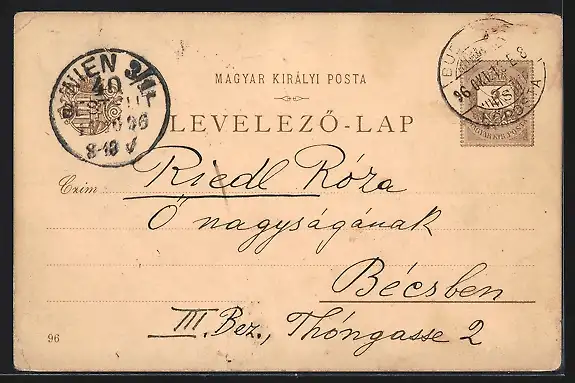 MAGYAR KIRÁLYI POSTA
LEVELEZŐ-LAP
WIEN 3/1
40
96
8-10 V
BUD
96 OKT
E 8
Czim:
Riedl Róza
Ő nagyságának
Bécsben
III. Bez., Thóngasse 2
96